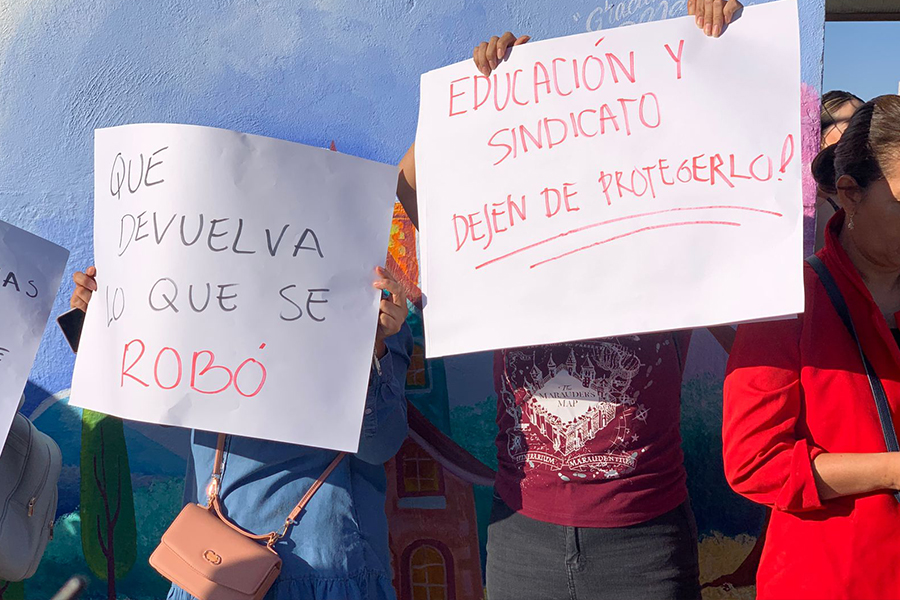 QUE
DEVUELVA
LO QUE SE
ROBÓ
EDUCACIÓN Y
SINDICATO
DEJEN DE PROTEGERLO!
The
MARAUDER'S
MAP
AS